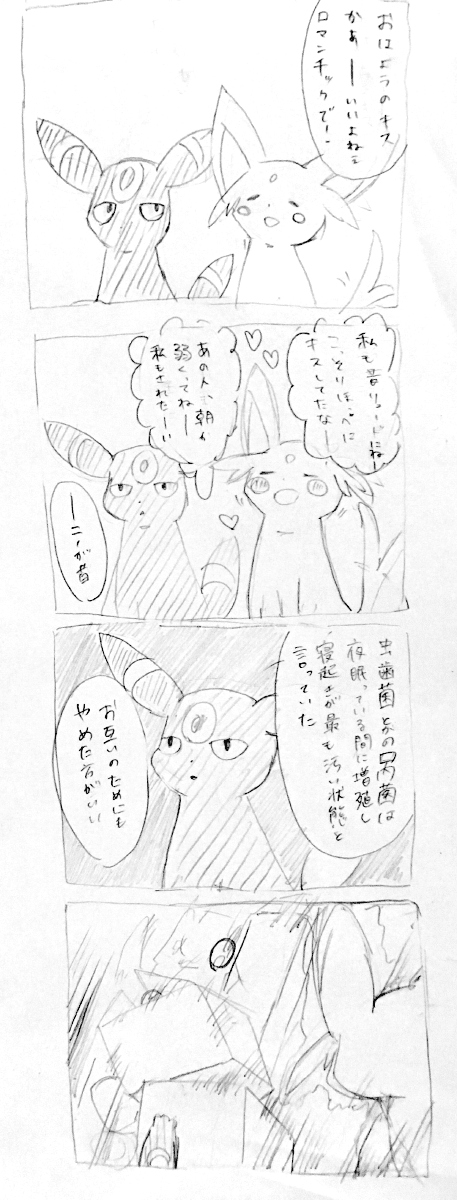 おはようのキス
かぁーいいよねぇ
ロマンチックでー
私も昔リードにねー
こっそりほっぺに
キスしてたなー
あの人も朝
弱くってねー
私もされたーい
ーニィが昔
虫歯菌とかの口内菌は
夜眠っている間に増殖し
寝起きが最も汚い状態と
言っていた
お互いのためにも
やめた方がいい